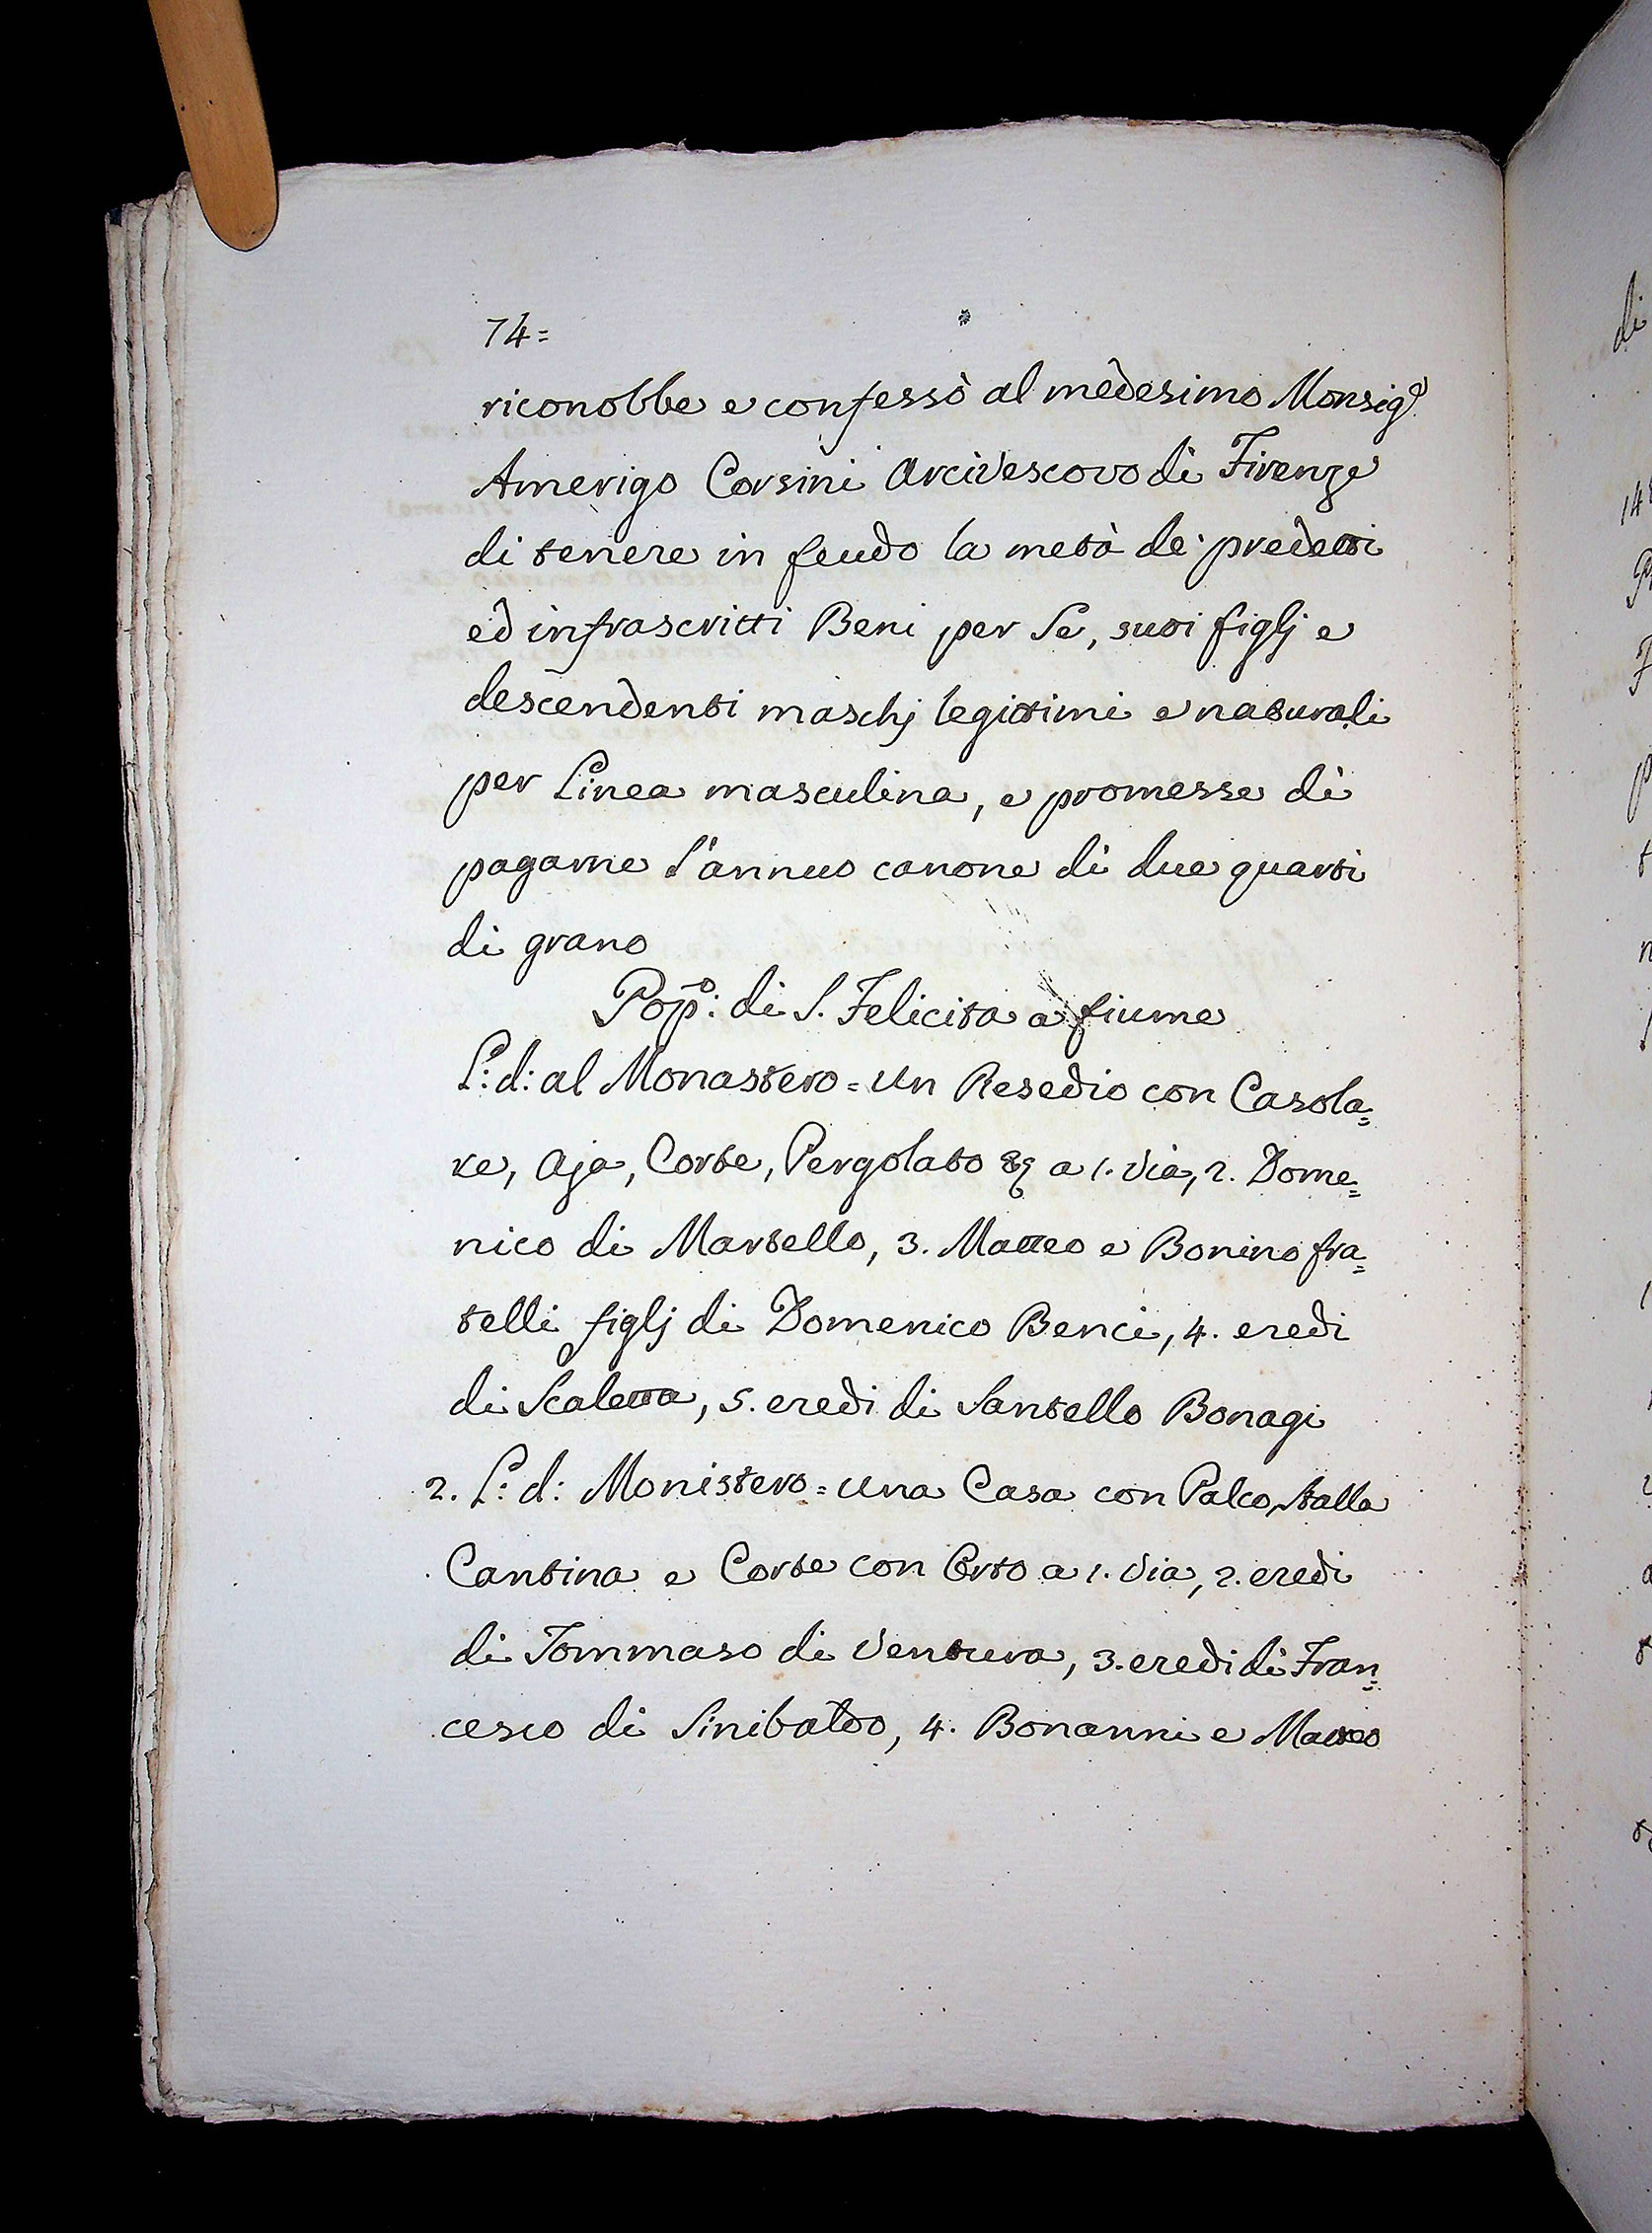 74=
riconobbe e confessò al medesimo Monsig.e
Amerigo Corsini Arcivescovo di Firenze
di tenere in feudo la metà de' predetti
ed infrascritti Beni per Se, suoi figlj e
descendenti maschj legittimi e naturali
per Linea masculina, e promesse di
pagarne l'annuo canone di due quarti
di grano
Pop.o: di S. Felicita a fiume
L: d: al Monastero = Un Resedio con Casola=
re, Aja, Corte, Pergolato &c a 1. Via, 2. Dome=
nico di Martello, 3. Matteo e Bonino fra=
telli figlj di Domenico Benci, 4. eredi
di Scaletta, 5. eredi di Santello Bonagi
2. L: d: Monistero = Una Casa con Palco, Stalla
Cantina e Corte con Orto a 1. Via, 2. eredi
di Tommaso di Ventura, 3. eredi di Fran=
cesco di Sinibaldo, 4. Bonanni e Matteo